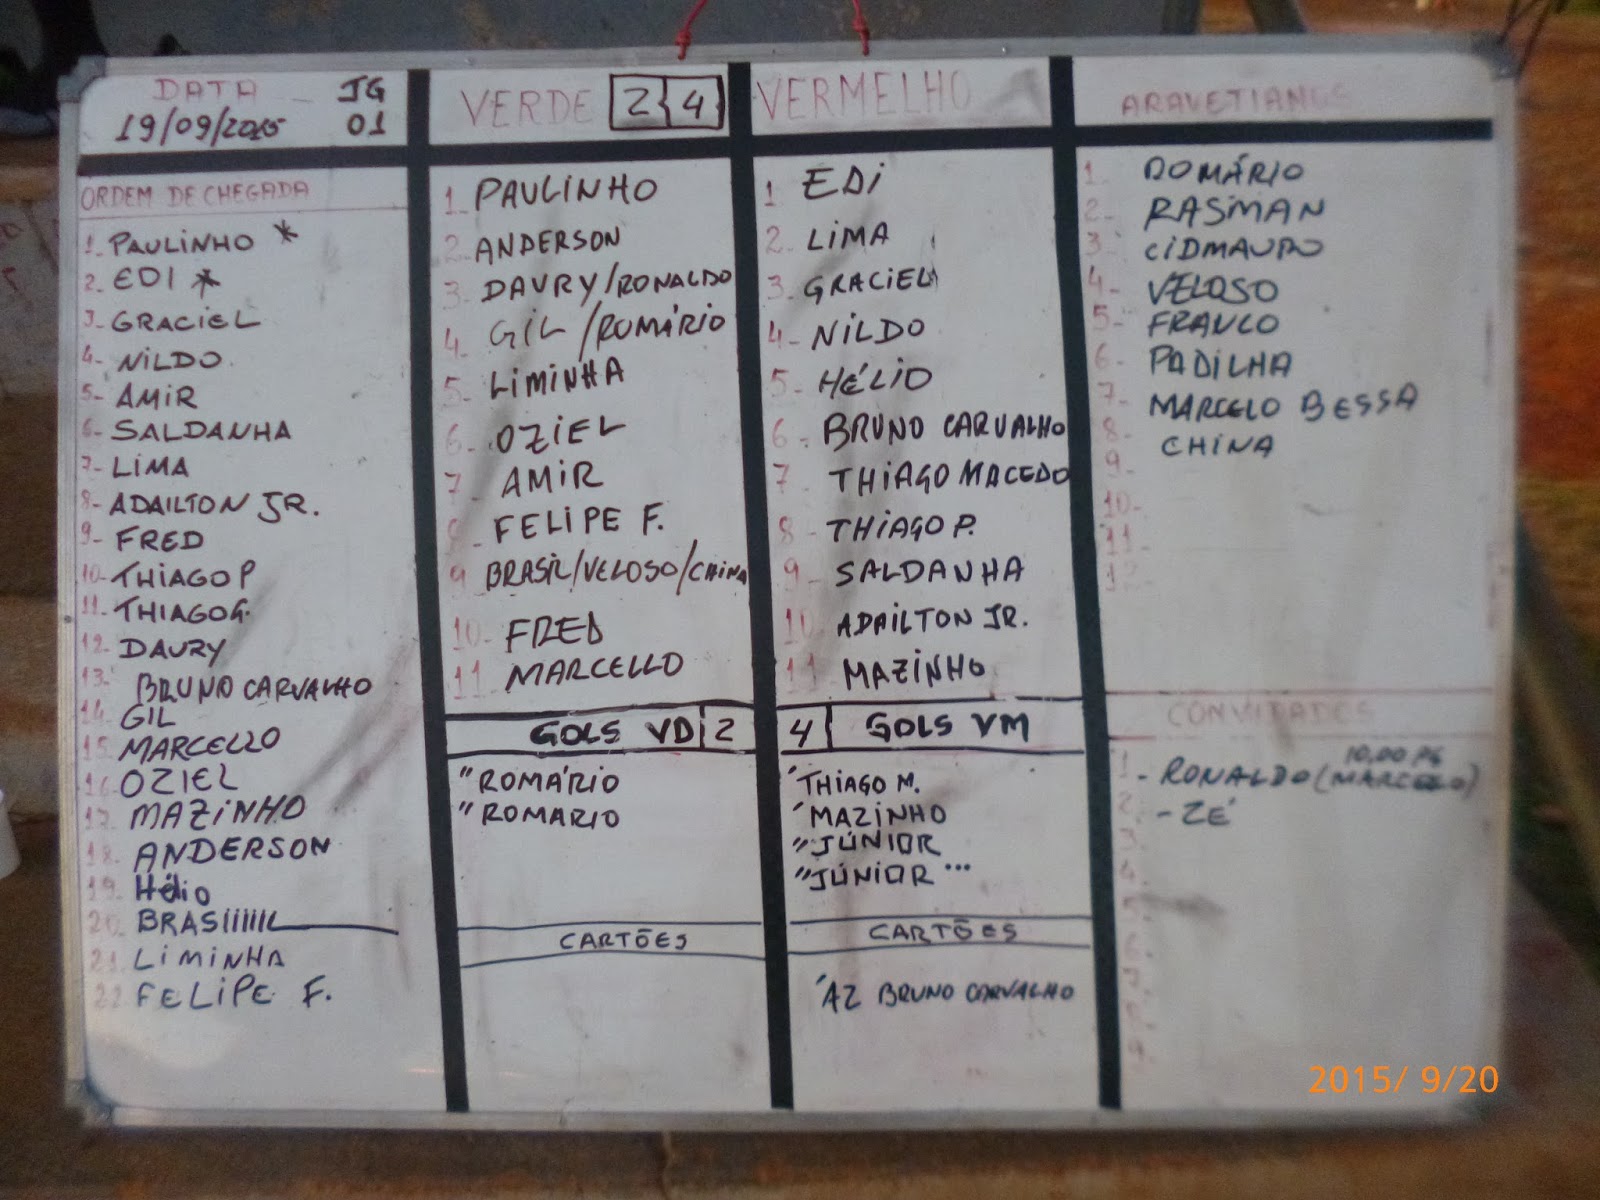 DATA JG
19/09/2015 01
ORDEM DE CHEGADA
1- PAULINHO *
2- EDI *
3- GRACIEL
4- NILDO
5- AMIR
6- SALDANHA
7- LIMA
8- ADAILTON JR.
9- FRED
10- THIAGO P
11- THIAGO G.
12- DAVRY
13- BRUNO CARVALHO
14- GIL
15- MARCELLO
16- OZIEL
17- MAZINHO
18- ANDERSON
19- Hélio
20- BRASIIIIIL
21- LIMINHA
22- FELIPE F.
VERDE 2 4
1- PAULINHO
2- ANDERSON
3- DAVRY/RONALDO
4- GIL /ROMÁRIO
5- LIMINHA
6- OZIEL
7- AMIR
8- FELIPE F.
9 BRASIL/VELOSO/CHINA
10- FRED
11 MARCELLO
GOLS VD 2
" ROMÁRIO
" ROMARIO
CARTÕES
VERMELHO
1 EDI
2- LIMA
3- GRACIEL
4- NILDO
5- HÉLIO
6- BRUNO CARVALHO
7 THIAGO MACEDO
8- THIAGO P.
9- SALDANHA
10 ADAILTON JR.
11 MAZINHO
4 GOLS VM
' THIAGO M.
' MAZINHO
" JÚNIOR
" JÚNIOR ...
CARTÕES
' AZ BRUNO CARVALHO
ARAVETIANOS
1- ROMÁRIO
2- RASMAN
3- CIDMAURO
4- VELOSO
5- FRANCO
6- PADILHA
7- MARCELO BESSA
8- CHINA
9-
10-
11-
12-
CONVIDADOS
10,00 PG
1- RONALDO (MARCELO)
2- ZÉ
3-
4-
5-
6-
7-
8-
9-
2015/ 9/20